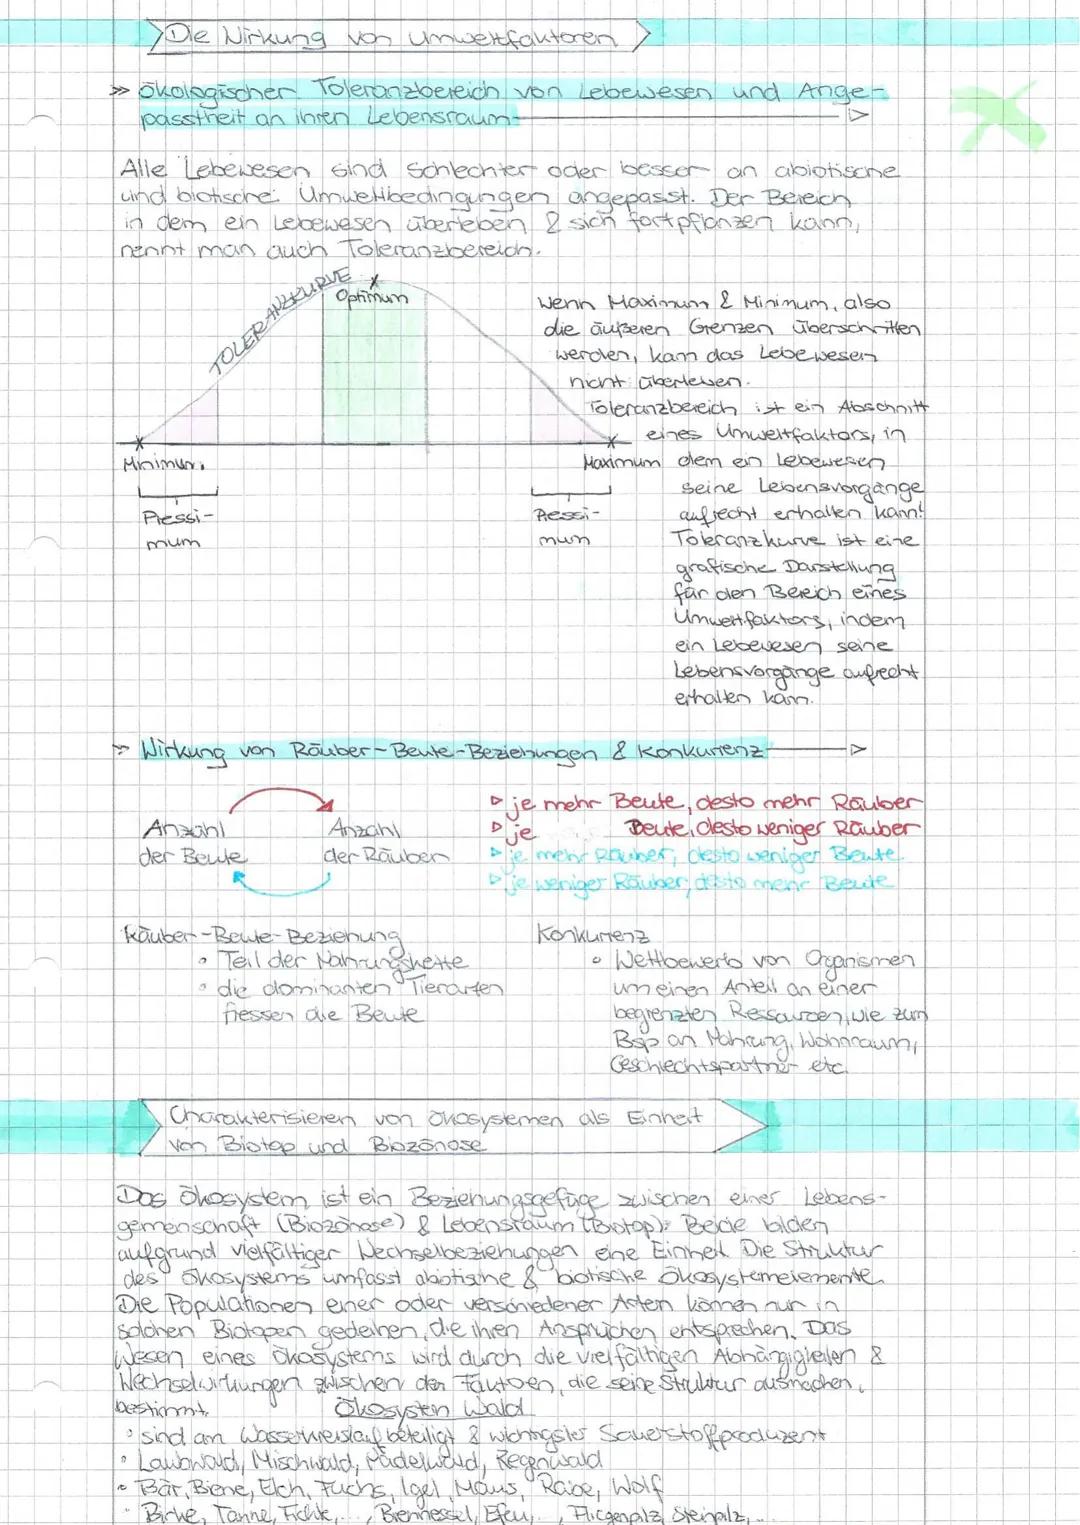 Die Wirkung von Umweltfaktoren
» ökologischer Toleranzbereich von Lebewesen und Ange-
passtheit an ihren Lebensraum
Alle Lebewesen sind schlechter oder besser an abiotische
und biotische Umweltbedingungen angepasst. Der Bereich
in dem ein Lebewesen überleben & sich fortpflanzen kann,
nennt man auch Toleranzbereich.
TOLERANZKURVE
Optimum
Minimum
Maximum
Pessi-
mum
Pessi-
mum
Wenn Maximum & Minimum, also
die äußeren Grenzen überschritten
werden, kann das Lebewesen
nicht überleben.
Toleranzbereich ist ein Abschnitt
eines Umweltfaktors, in
dem ein Lebewesen
seine Lebensvorgänge
aufrecht erhalten kann!
Toleranzkurve ist eine
grafische Darstellung
für den Bereich eines
Umweltfaktors, indem
ein Lebewesen seine
Lebensvorgänge aufrecht
erhalten kann.
» Wirkung von Räuber-Beute-Beziehungen & Konkurrenz
Anzahl
der Beute
Anzahl
der Räuber
▷ je mehr Beute, desto mehr Räuber
▷ je Beute, desto weniger Räuber
▷ je mehr Räuber, desto weniger Beute
▷ je weniger Räuber, desto mehr Beute
Räuber-Beute-Beziehung
• Teil der Nahrungskette
• die dominanten Tierarten
fressen die Beute
Konkurrenz
• Wettbewerb von Organismen
um einen Anteil an einer
begrenzten Ressourcen, wie zum
Bsp an Nahrung, Wohnraum,
Geschlechtspartner etc.
Charakterisieren von Ökosystemen als Einheit
von Biotop und Biozönose
Das Ökosystem ist ein Beziehungsgefüge zwischen einer Lebens-
gemeinschaft (Biozönose) & Lebensraum (Biotop). Beide bilden
aufgrund vielfältiger Wechselbeziehungen eine Einheit. Die Struktur
des Ökosystems umfasst abiotische & biotische Ökosystemelemente.
Die Populationen einer oder verschiedener Arten können nur in
solchen Biotopen gedeihen, die ihren Ansprüchen entsprechen. Das
Wesen eines Ökosystems wird durch die vielfältigen Abhängigkeiten &
Wechselwirkungen zwischen den Faktoren, die seine Struktur ausmachen,
bestimmt.
Ökosystem Wald
• sind am Wasserkreislauf beteiligt & wichtigster Sauerstoffproduzent
• Laubwald, Mischwald, Nadelwald, Regenwald
• Bär, Biene, Elch, Fuchs, Igel, Maus, Rabe, Wolf
• Birke, Tanne, Fichte, ..., Brennessel, Efeu, ..., Fliegenpilz, Steinpilz, ...